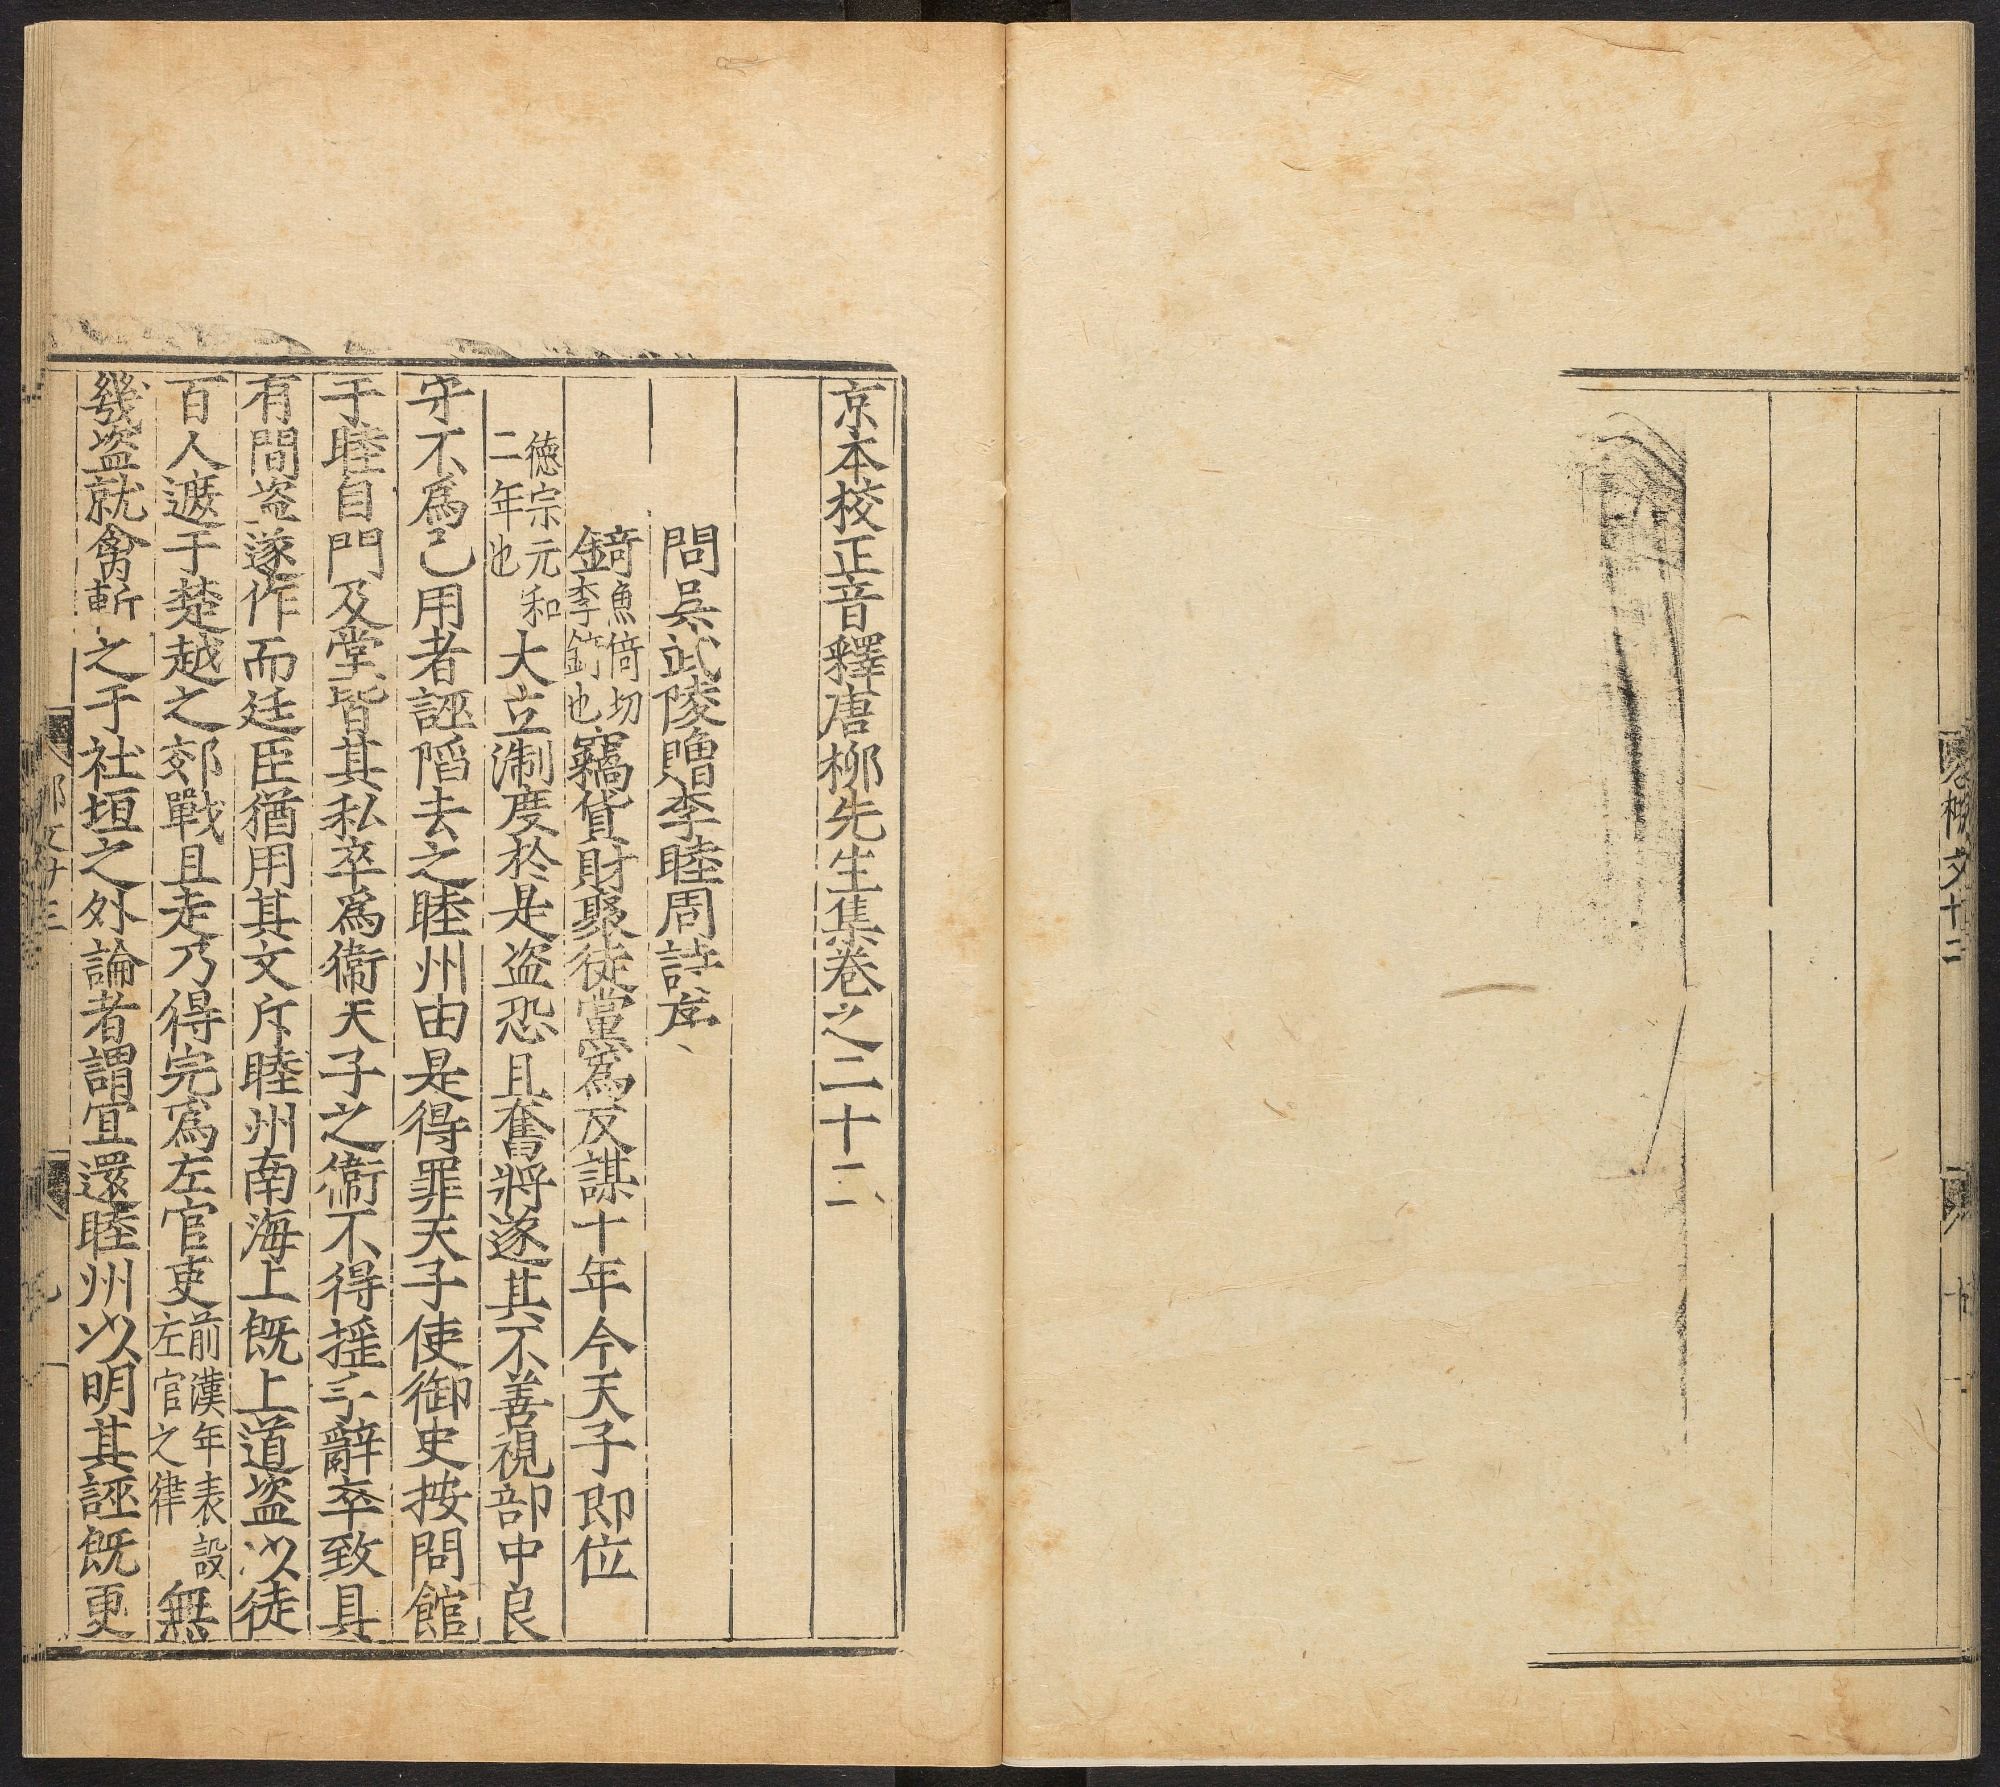 京本校正音釋唐柳先生集卷之二十二
問吳武陵贈李睦周詩序
錡魚倚切李錡也竊貨財聚徒黨爲反謀十年今天子即位
德宗元和二年也大立制度於是盗恐且奮將遂其不善視部中良
守不爲己用者誣陷去之睦州由是得罪天子使御史按問館
于睦自門及堂皆其私卒爲衞天子之衞不得摇手辭卒致具
有間盗遂作而廷臣猶用其文斥睦州南海上既上道盗以徒
百人遮于楚越之郊戰且走乃得完爲左官吏前漢年表設左官之律無
幾盗就禽斬之于社垣之外論者謂宜還睦州以明其誣既更